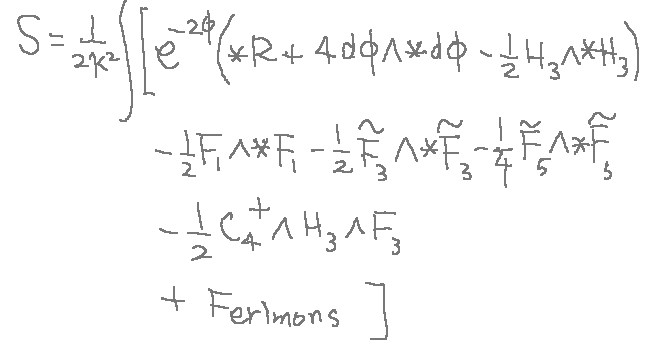 S = 1/2κ² ∫ [ e^{-2φ} ( *R + 4 dφ ∧ *dφ - 1/2 H₃ ∧ *H₃ )
- 1/2 F₁ ∧ *F₁ - 1/2 F̃₃ ∧ *F̃₃ - 1/4 F̃₅ ∧ *F̃₅
- 1/2 C₄⁺ ∧ H₃ ∧ F₃
+ Ferimons ]